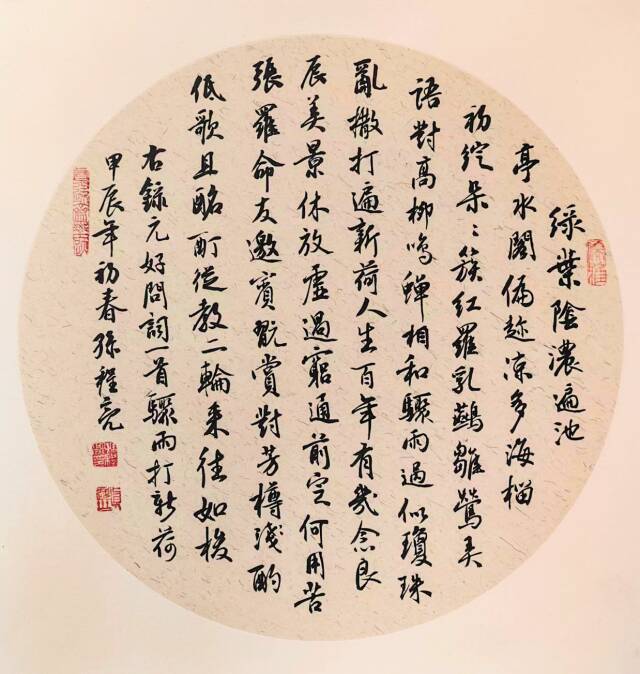 綠葉陰濃遍池
亭水閣偏趁涼多海榴
初綻朵々簇紅羅乳鷰雛鶯弄
語對高柳鳴蟬相和驟雨過似瓊珠
亂撒打遍新荷人生百年有幾念良
辰美景休放虛過窮通前定何用苦
張羅命友邀賓翫賞對芳樽淺酌
低歌且酩酊從教二輪來往如梭
右錄元好問詞一首驟雨打新荷
甲辰年初春孫程亮